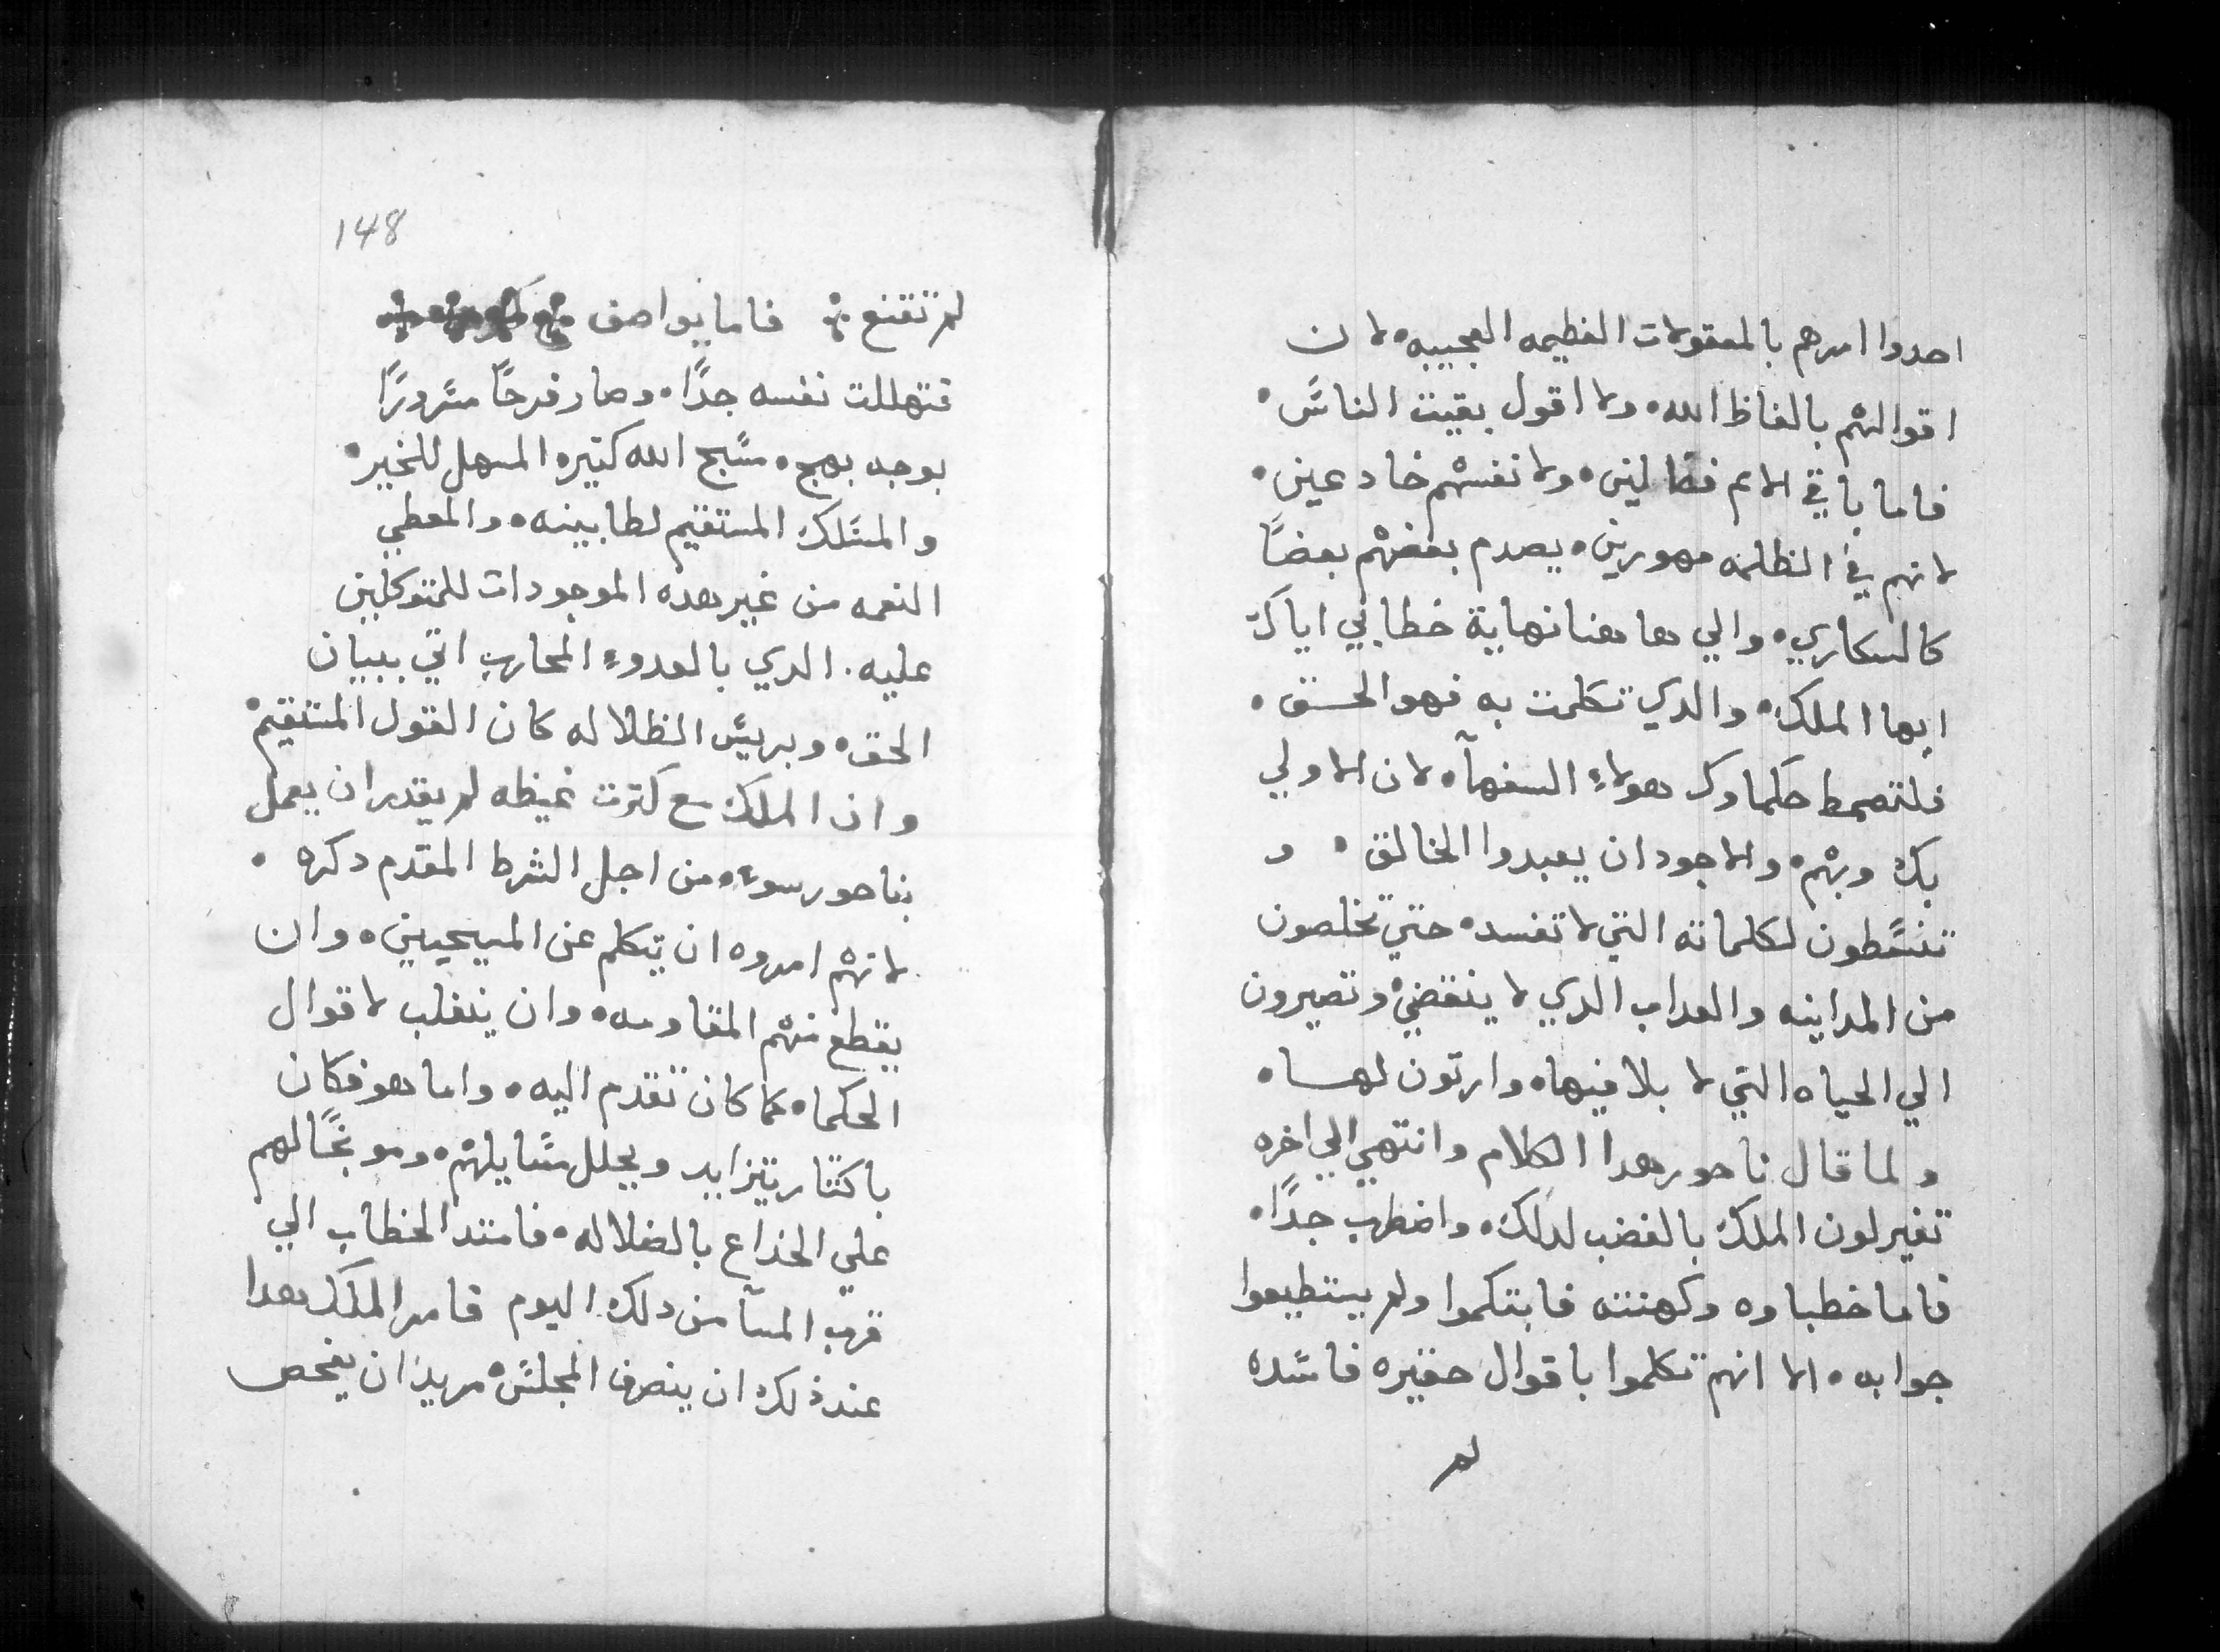 احدوا امرهم بالمعقولات العظيمه العجيبه، لان
اقوالهم بالفاظ الله، ولا اقول بقيت الناس،
فاما باقي الامم فضالين، ولانفسهم خادعين،
لانهم في الظلمه مهورين، يصدم بعضهم بعضًا
كالسكاري، والي هاهنا نهاية خطابي اياك
ايها الملك، والدي تكلمت به فهو الحق،
فلتصمط حكماوك هولاءِ السفهآ، لان الاولي
بك وبهم، والاجود ان يعبدوا الخالق، و
تنسطون لكلماته التي لا تفسد، حتي تخلصون
من المداينه والعداب الدي لا ينقضي، وتصيرون
الي الحياه التي لا بلا فيها، وارتون لها،
ولما قال ناحور هدا الكلام وانتهي الي اخره
تغير لون الملك بالغضب لدلك، واضطرب جدًا،
فاما خطباوه وكهنته فابتكموا ولم يستطيعوا
جوابه، الا انهم تكلموا باقوال حقيره فاسده
لم
148
لم تقنع ۞ فاما يواصف
فتهللت نفسه جدًا، وصار فرحًا مسرورًا
بوجه بهج، سبح الله كتيره المسهل للخير،
والمسلك المستقيم لطابينه، والمعطي
النعمه من غير هده الموجودات للمتوكلين
عليه. الدي بالعدوءِ المحارب اتي ببيان
الحق، وبريس الظلاله كان القول المستقيم،
وان الملك مع كترت غيظه لم يقدر ان يعمل
بناحور سوء، من اجل الشرط المقدم دكره،
لانهم امروه ان يتكلم عن المسيحيين، وان
يقطع منهم المقاومه، وان ينغلب لاقوال
الحكماه كما كان تقدم اليه، واما هو فكان
باكتار يتزايد ويحلل مسايلهم، وموبخًا لهم
علي الخداع بالضلاله، فامتد الخطاب الي
قرب المسآ من دلك اليوم فامر الملك هدا
عند ذلك ان ينصرف المجلس، مريدًا ان يفحص